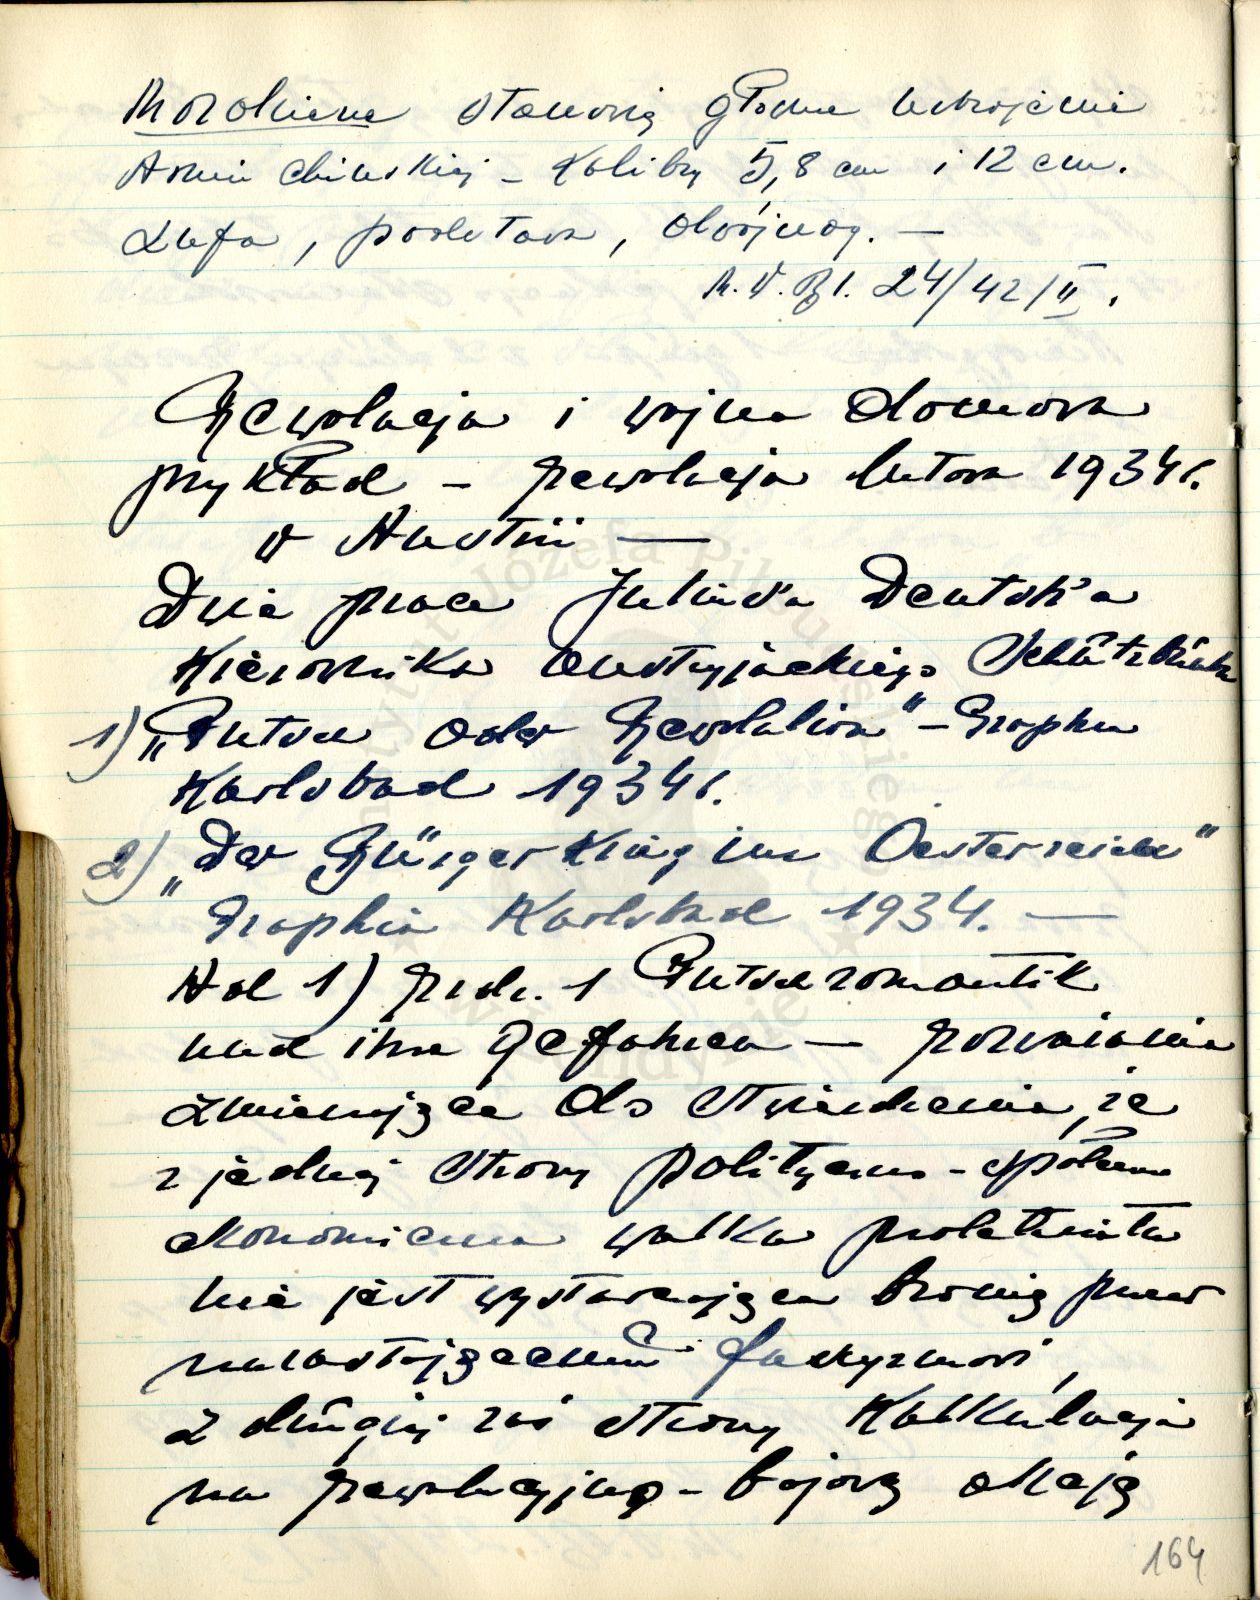 Moździerze stanowią główne uzbrojenie
Armii chińskiej – Kalibry 5,8 cm i 12 cm.
Lufa, podstawa, dwójnóg. —
M.W.Bl. 24/42/II.
Rewolucja i wojna domowa
przykład – rewolucja lutowa 1934 r.
w Austrii —
Dwie prace Julius'a Deutsch'a
Kierownika austryjackiego Schützbundu
1) „Putsch oder Revolution" – Graphia
Karlsbad 1934 r.
2) „Der Bürgerkrieg im Oesterreich"
Graphia Karlsbad 1934. —
Ad 1) rozdz. 1 Putschromantik
und ihre Gefahren — rozważania
zmierzające do stwierdzenia, że
z jednej strony polityczno-społeczno
ekonomiczna walka proletariatu
nie jest wystarczającą bronią przeciw
nadstającemu faszyzmowi,
z drugiej zaś strony Kalkulacja
na rewolucyjną – bojową akcję
164
Instytut Józefa Piłsudskiego
w Londynie